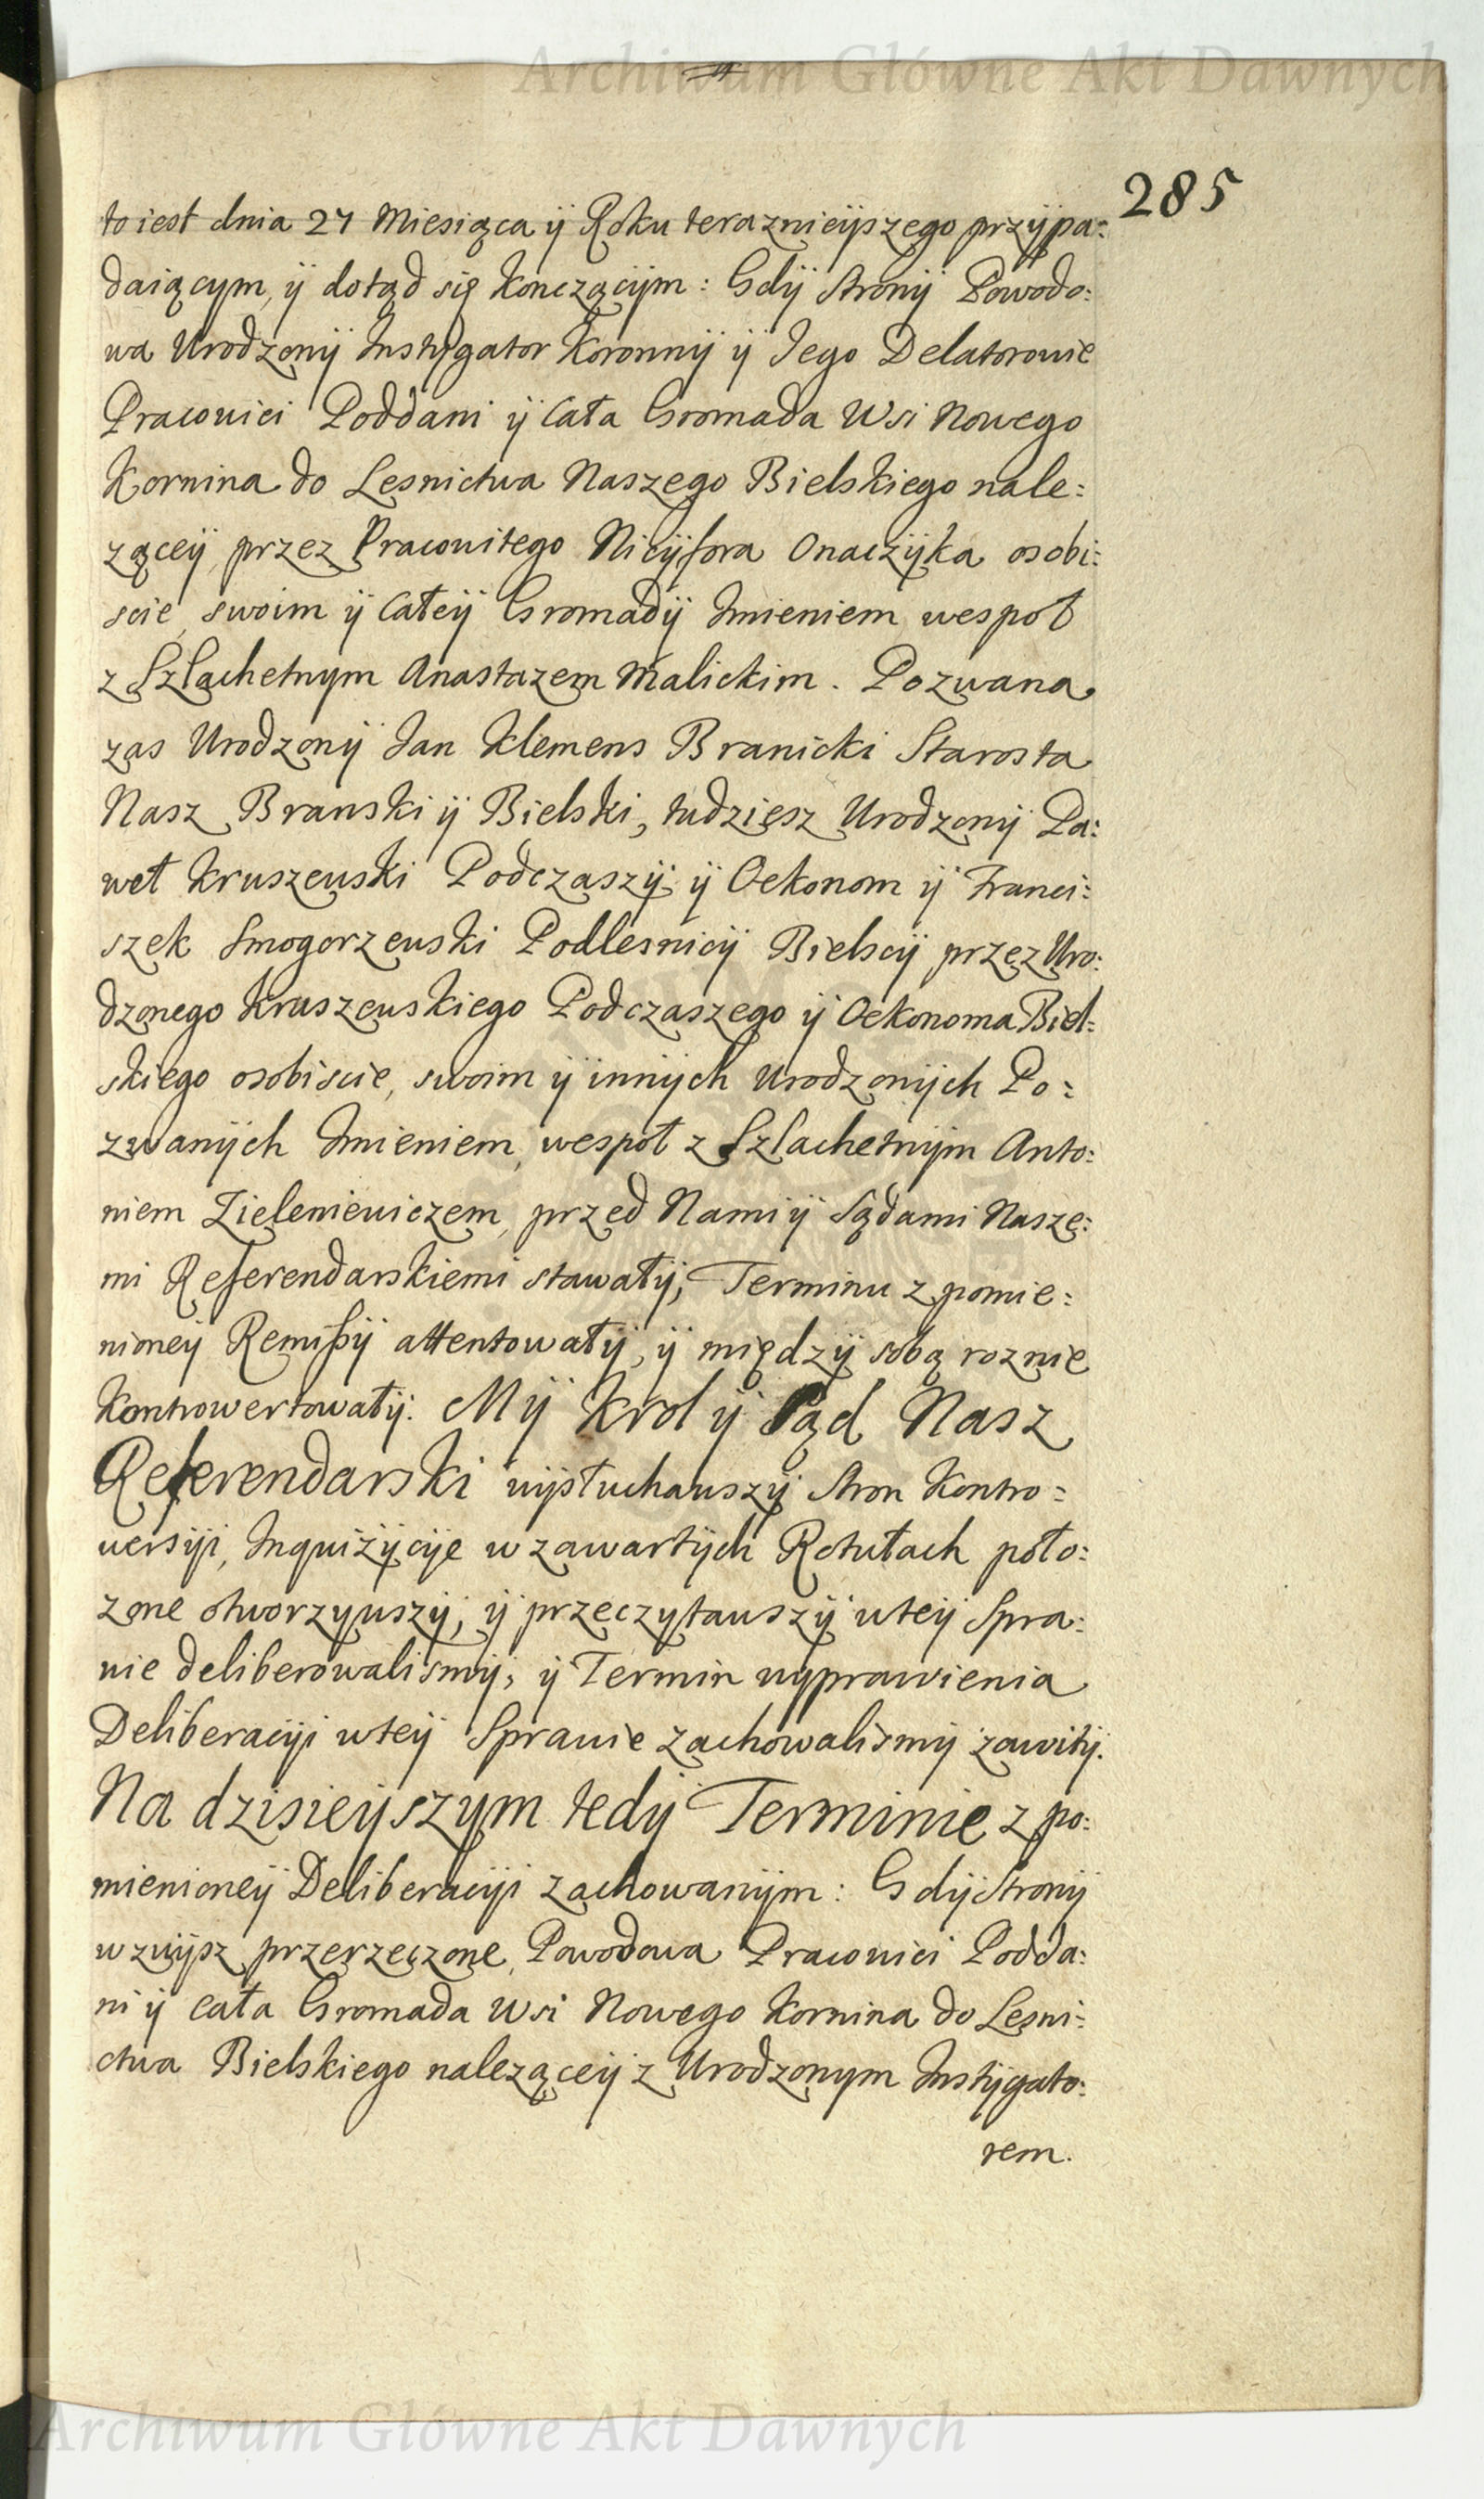 Archiwum Główne Akt Dawnych
285
to iest dnia 27 Miesiąca ÿ Roku teraznieÿszego przÿpa:
daiącym, ÿ dotąd się konczącÿm: Gdÿ Stronÿ Powodo:
wa Urodzonÿ Instÿgator Koronnÿ ÿ Jego Delatorowie
Pracowici Poddani ÿ Cała Gromada Wsi Nowego
Kornina do Lesnictwa Naszego Bielskiego nale:
ząceÿ, przez Pracowitego Nicÿfora Onaczÿka osobi:
scie, swoim ÿ Całeÿ Gromadÿ Imieniem wespoł
z Szlachetnym Anastazem Malickim. Pozwana
zas Urodzonÿ Jan Klemens Branicki Starosta
Nasz Branski ÿ Bielski, tudziesz Urodzonÿ Pa:
weł Kruszewski Podczaszÿ ÿ Oekonom ÿ Franci:
szek Smogorzewski Podlesnicÿ Bielscÿ przez Uro:
dzonego Kruszewskiego Podczaszego ÿ Oekonoma Biel:
skiego osobiscie, swoim ÿ innÿch Urodzonÿch Po:
zwanÿch Imieniem, wespoł z Szlachetnÿm Anto:
niem Zieleniewiczem, przed Nami ÿ Sądami Nasze:
mi Referendarskiemi stawałÿ, Terminu z pomie:
nioneÿ Remißÿ attentowałÿ, ÿ międzÿ sobą roznie
kontrowertowałÿ. Mÿ Krol ÿ Sąd Nasz
Referendarski wÿsłuchawszÿ Stron Kontro:
wersÿi, Inquizÿcÿe w zawartÿch Rotułach poło:
zone otworzywszÿ, ÿ przeczytawszÿ wteÿ Spra:
wie deliberowalismÿ, ÿ Termin wyprawienia
Deliberacÿi wteÿ Sprawie zachowalismÿ zawitÿ.
Na dzisieÿszym tedÿ Terminie z po:
mienioneÿ Deliberacÿi zachowanÿm: Gdÿ Stronÿ
wzwÿsz przerzeczone, Powodowa Pracowici Podda:
ni ÿ cała Gromada Wsi Nowego Kornina do Lesni:
ctwa Bielskiego naleząceÿ z Urodzonym Instÿgato:
rem.
Archiwum Główne Akt Dawnych